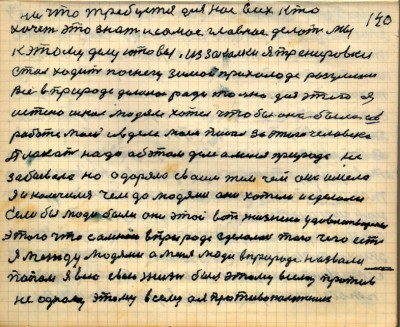 на что требуется для нас всех кто 140
хочет это знат и самое главное делат мы
к этому делу готовы. из закалки я тренировки
стал ходит по снегу зимой при холоде разумеши
Всё в природе делаю ради только для этого я
истено искал людям хотел чтобы она была в
работе моей в деле моём писал за этого человека
Плакат надо об этом деле а меня природа не
забывала но одоряла своим тем чем она имела
Я и научился чем до людями они хотели и сделали
Если бы люди были они этой вот жизнею удовлетворены
этого что самой в природе сделали того чего есть
Я между людями а меня люди в природе назвали
папом Я всю свою жизнь был этому всему против
не одному этому всему а я противоположник